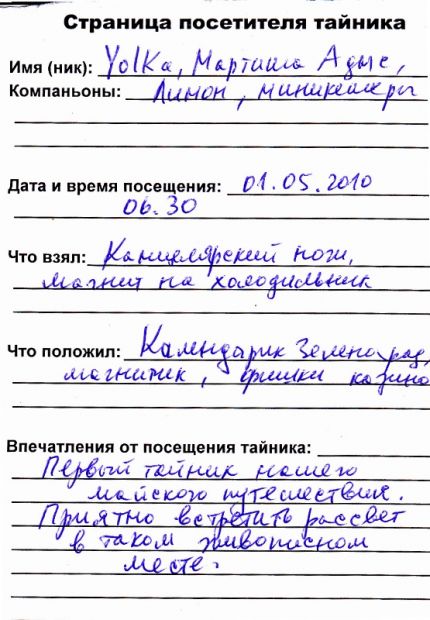 Страница посетителя тайника
Имя (ник): Yolka, Мартиша Адыс,
Компаньоны: Лимон, миникешеры
Дата и время посещения: 01.05.2010
06.30
Что взял: Канцелярский нож,
магнит на холодильник
Что положил: Календарик Зеленоград,
магнитик, фишки казино
Впечатления от посещения тайника:
Первый тайник нашего
майского путешествия.
Приятно встретить рассвет
в таком живописном
месте.